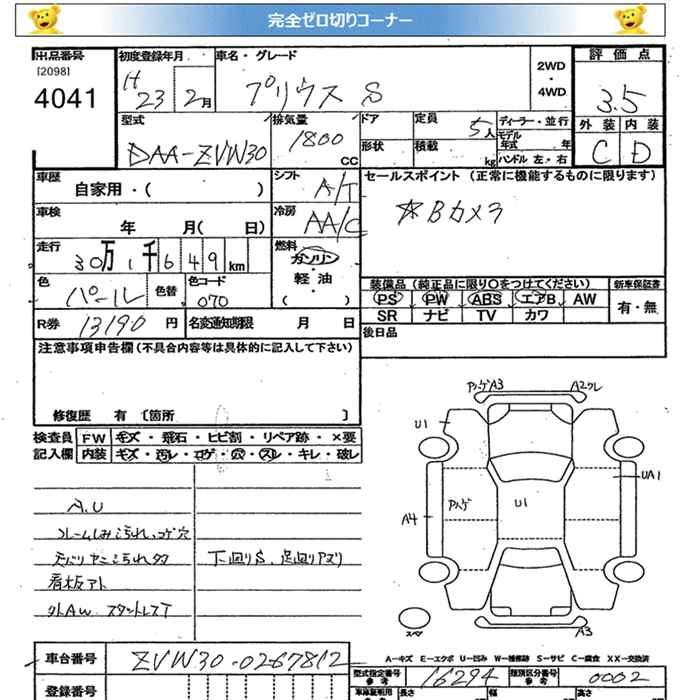 完全ゼロ切りコーナー
出品番号
[2098]
4041
初度登録年月
H 23 2月
車名・グレード
プリウス S
2WD
・
4WD
評価点
3.5
外装 内装
C D
型式
DAA-ZVW30
排気量
1800 CC
ドア
形状
定員 5人
積載 kg
ディーラー・並行
モデル年式 年
ハンドル 左・右
車歴
自家用・( )
シフト A/T
セールスポイント (正常に機能するものに限ります)
☆Bカメラ
車検
年 月( 日)
冷房 AA/C
走行
30万1千649km
燃料
ガソリン
・
軽油
・
( )
色 パール 色替
色コード 070
装備品 (純正品に限り○をつけてください)
PS PW ABS エアB AW
SR ナビ TV カワ
新車保証書
有・無
R券 13190 円
名変通知期限 月 日
後日品
注意事項申告欄(不具合内容等は具体的に記入して下さい)
修復歴 有 〔箇所 〕
検査員記入欄
FW キズ・飛石・ヒビ割・リペア跡・×要
内装 キズ・汚レ・コゲ・穴・スレ・キレ・破レ
A.U
天バリヤニ汚れ多
看板アト
外AW スタットレスT
下回りS、足回りアリ
A3
A2
U1
U1
UA1
A4
A3
スペア
車台番号 ZVW30-0267812
A-キズ E-エクボ U-凹み W-補修跡 S-サビ C-腐食 XX-交換済
登録番号
型式指定番号 参考 16294
類別区分番号 参考 0002
車庫証明用参考 長さ 幅 高さ